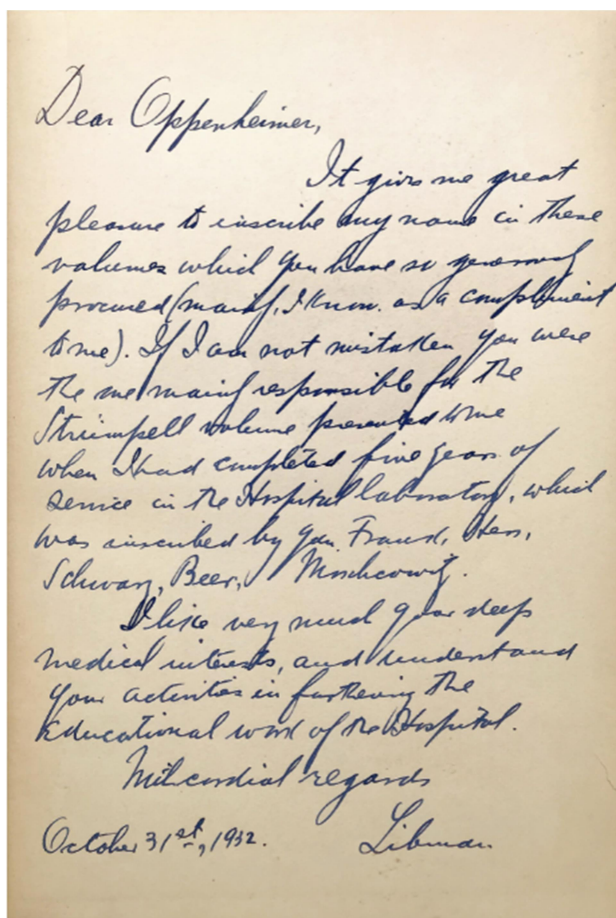 Dear Oppenheimer,
It gives me great
pleasure to inscribe my name in these
volumes which you have so generously
procured (mainly, I know, as a compliment
to me). If I am not mistaken you were
the one mainly responsible for the
Strümpell volume presented to me
when I had completed five years of
service in the Hospital laboratory, which
was inscribed by you, Hess,
Schwarz, Beer, Moschcowitz.
I like very much your deep
medical interests, and understand
your activities in furthering the
Educational work of the Hospital.
With cordial regards
October 31st, 1932.
Libman